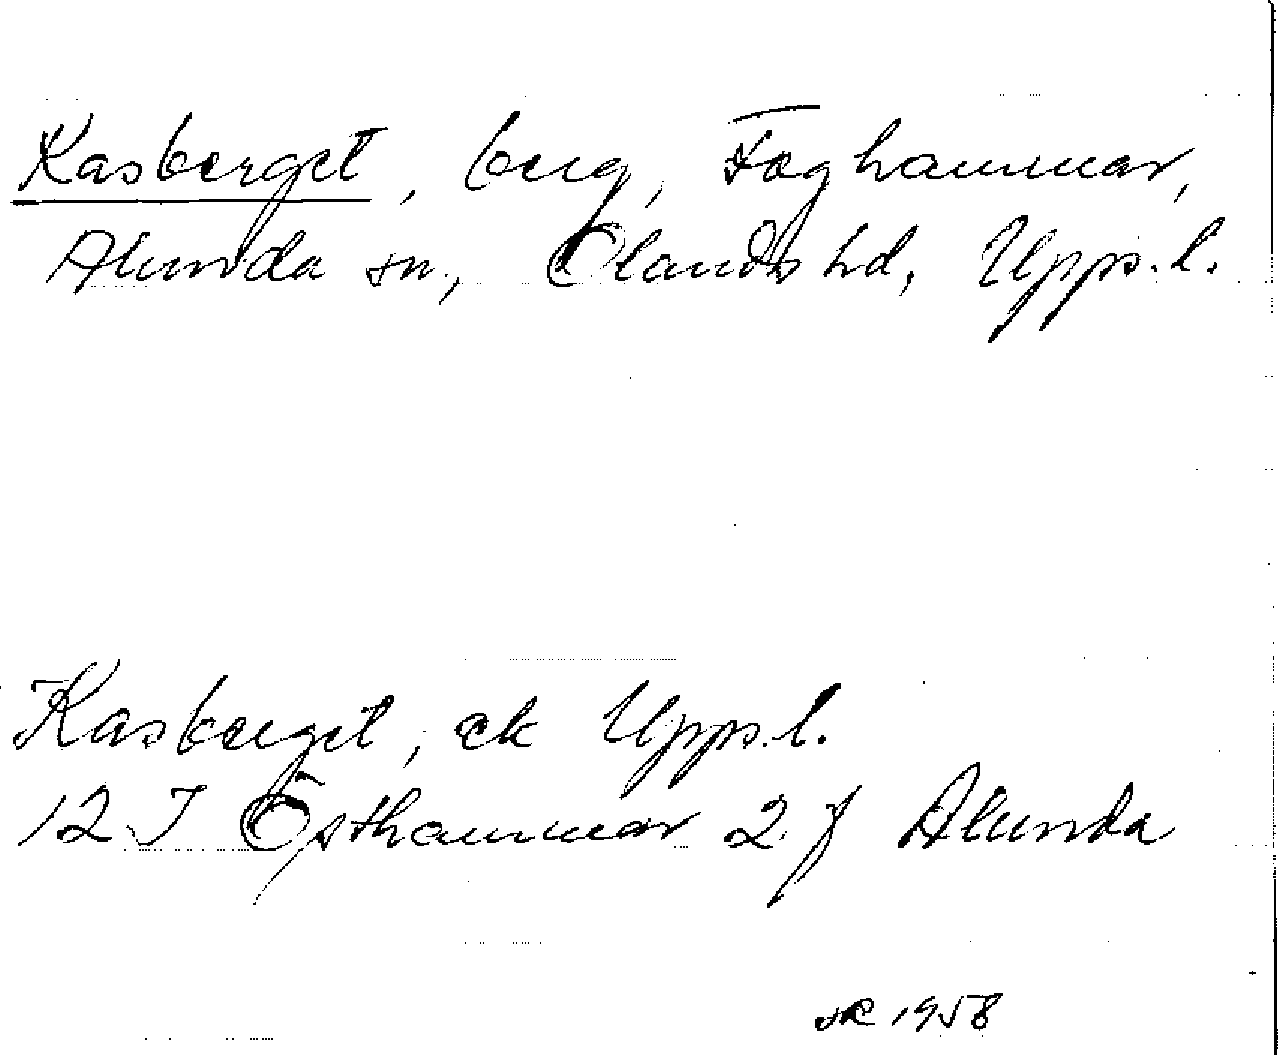 Kasberget, berg, Foghammar,
Alunda sn., Olands hd, Upps. l.
Kasberget, ek Upps. l.
12 I Östhammar 2 f Alunda
1958